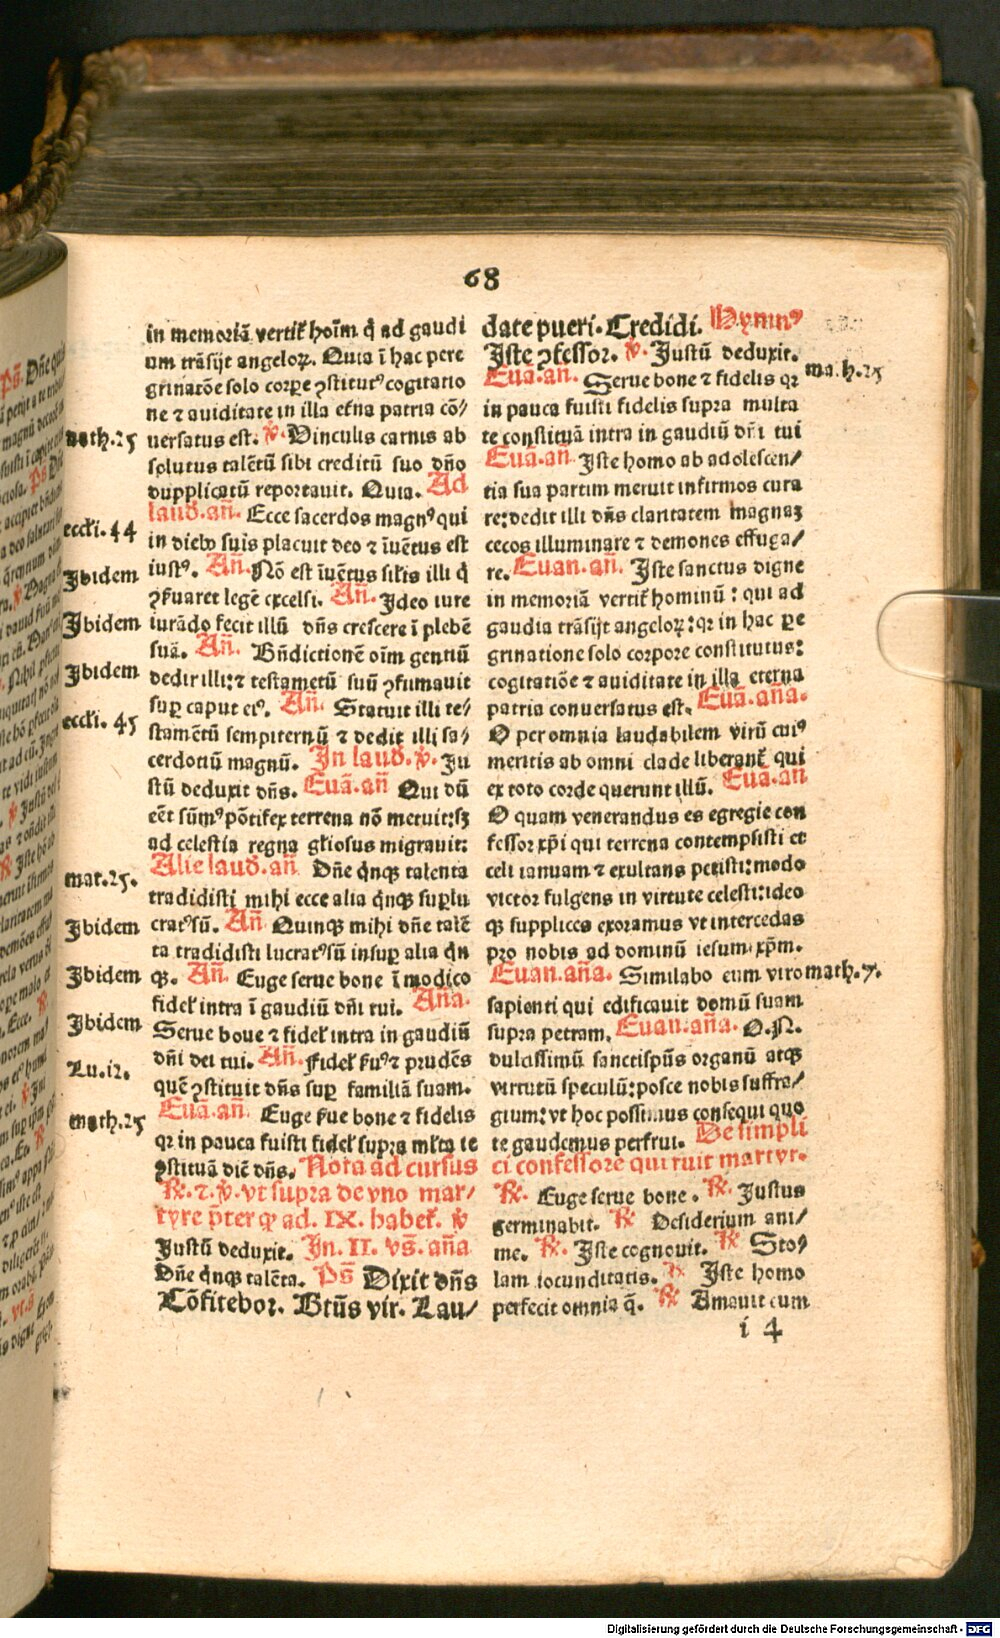 68
in memoriā vertiť hoīm q̄ ad gaudi
um trāsijt angeloꝝ. Quia ī hac pere
grinatōe solo corꝑe ꝯstitutꝰ cogitatio
ne ⁊ auiditate in illa etn̄a patria cō/
uersatus est. ℣. Vinculis carnis ab
solutus talētū sibi creditū suo dn̄o
dupplicatū reportauit. Quia. Ad
laud̄. an̄. Ecce sacerdos magnꝰ qui
in dieb suis placuit deo ⁊ īuētus est
iustꝰ. An̄. Nō est īuētus siľis illi q̄
ꝯẜuaret legē excelsi. An̄. Jdeo iure
iurādo fecit illū dn̄s crescere ī plebē
suā. An̄. Bn̄dictionē oīm gentiū
dedit illi: ⁊ testametū suū ꝯfirmauit
suꝑ caput eiꝰ. An̄. Statuit illi te/
stamētū sempiternū ⁊ dedit illi sa/
cerdotiū magnū. Jn laud̄. ℣. Ju
stū deduxit dn̄s. Euā. an̄ Qui dū
eēt sūmꝰ pōtifex terrena nō metuit: sꝫ
ad celestia regna gľiosus migrauit:
Alie laud̄. an̄ Dn̄e q̄nqꝫ talenta
tradidisti mihi ecce alia q̄nqꝫ suꝑlu
cratꝰ sū. An̄ Quinqꝫ mihi dn̄e talē
ta tradidisti lucratꝰ sū insuꝑ alia q̄n
qꝫ. An̄. Euge serue bone ī modico
fideľ intra ī gaudiū dn̄i tui. An̄a.
Serue boue ⁊ fideľ intra in gaudiū
dn̄i dei tui. An̄. Fideľ ẜuꝰ ⁊ prudēs
quē ꝯstituit dn̄s suꝑ familiā suam.
Euā. an̄ Euge ẜue bone ⁊ fidelis
qꝛ in pauca fuisti fideľ supra mľta te
ꝯstituā dic̄ dn̄s. Nota ad cursus
℟. ⁊. ℣. vt supra de vno mar/
tyre p̄ter qꝙ ad. IX. habeť. ℣
Justū deduxit. Jn. II. vs̄. an̄a
Dn̄e q̄nqꝫ talēta. Ps̄ Dixit dn̄s
Cōfitebor. Btūs vir. Lau/
math.25
eccľi. 44
Jbidem
Jbidem
Jbidem
eccľi. 45
mat.25.
Jbidem
Jbidem
Jbidem
Lu.12.
math.25
date pueri. Credidi. Hymnꝰ
Jste ꝯfessor. ℣. Justū deduxit.
Euā. an̄. Serue bone ⁊ fidelis qꝛ
in pauca fuisti fidelis supra multa
te constituā intra in gaudiū dn̄i tui
Euā. an̄. Jste homo ab adolescen/
tia sua partim meruit infirmos cura
re: dedit illi dn̄s claritatem magnaꝫ
cecos illuminare ⁊ demones effuga/
re. Euan. an̄. Jste sanctus digne
in memoriā vertiť hominū: qui ad
gaudia trāsijt angeloꝝ: qꝛ in hac ꝑe
grinatione solo corpore constitutus:
cogitatiōe ⁊ auiditate in illa eterna
patria conuersatus est. Euā. an̄a.
O per omnia laudabilem virū cuiꝰ
meritis ab omni clade liberanť qui
ex toto corde querunt illū. Euā. an̄
O quam venerandus es egregie con
fessor xp̄i qui terrena contempsisti et
celi ianuam ⁊ exultans petisti: modo
victor fulgens in virtute celesti: ideo
qꝫ supplices exoramus vt intercedas
pro nobis ad dominū iesum xp̄m.
Euan. an̄a. Similabo eum viro
sapienti qui edificauit domū suam
supra petram. Euan. an̄a. O. N.
dulcissimū sanctispūs organū atqꝫ
virtutū speculū: posce nobis suffra/
gium: vt hoc possimus consequi quo
te gaudemus perfrui. De simpli
ci confessore qui fuit martyr.
℟. Euge serue bone. ℟. Justus
germinabit. ℟ Desiderium ani/
me. ℟. Jste cognouit. ℟ Sto/
lam iocunditatis. ℟ Jste homo
perfecit omnia q̄. ℟ Amauit eum
math.25
math.7.
i 4
Digitalisierung gefördert durch die Deutsche Forschungsgemeinschaft - DFG